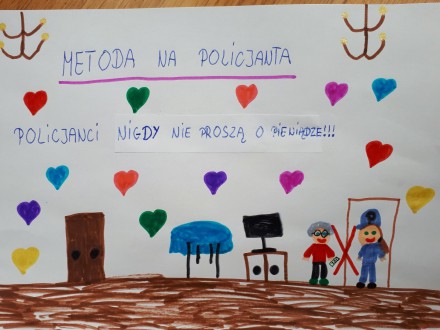 METODA NA POLICJANTA
POLICJANCI NIGDY NIE PROSZĄ O PIENIĄDZE!!!